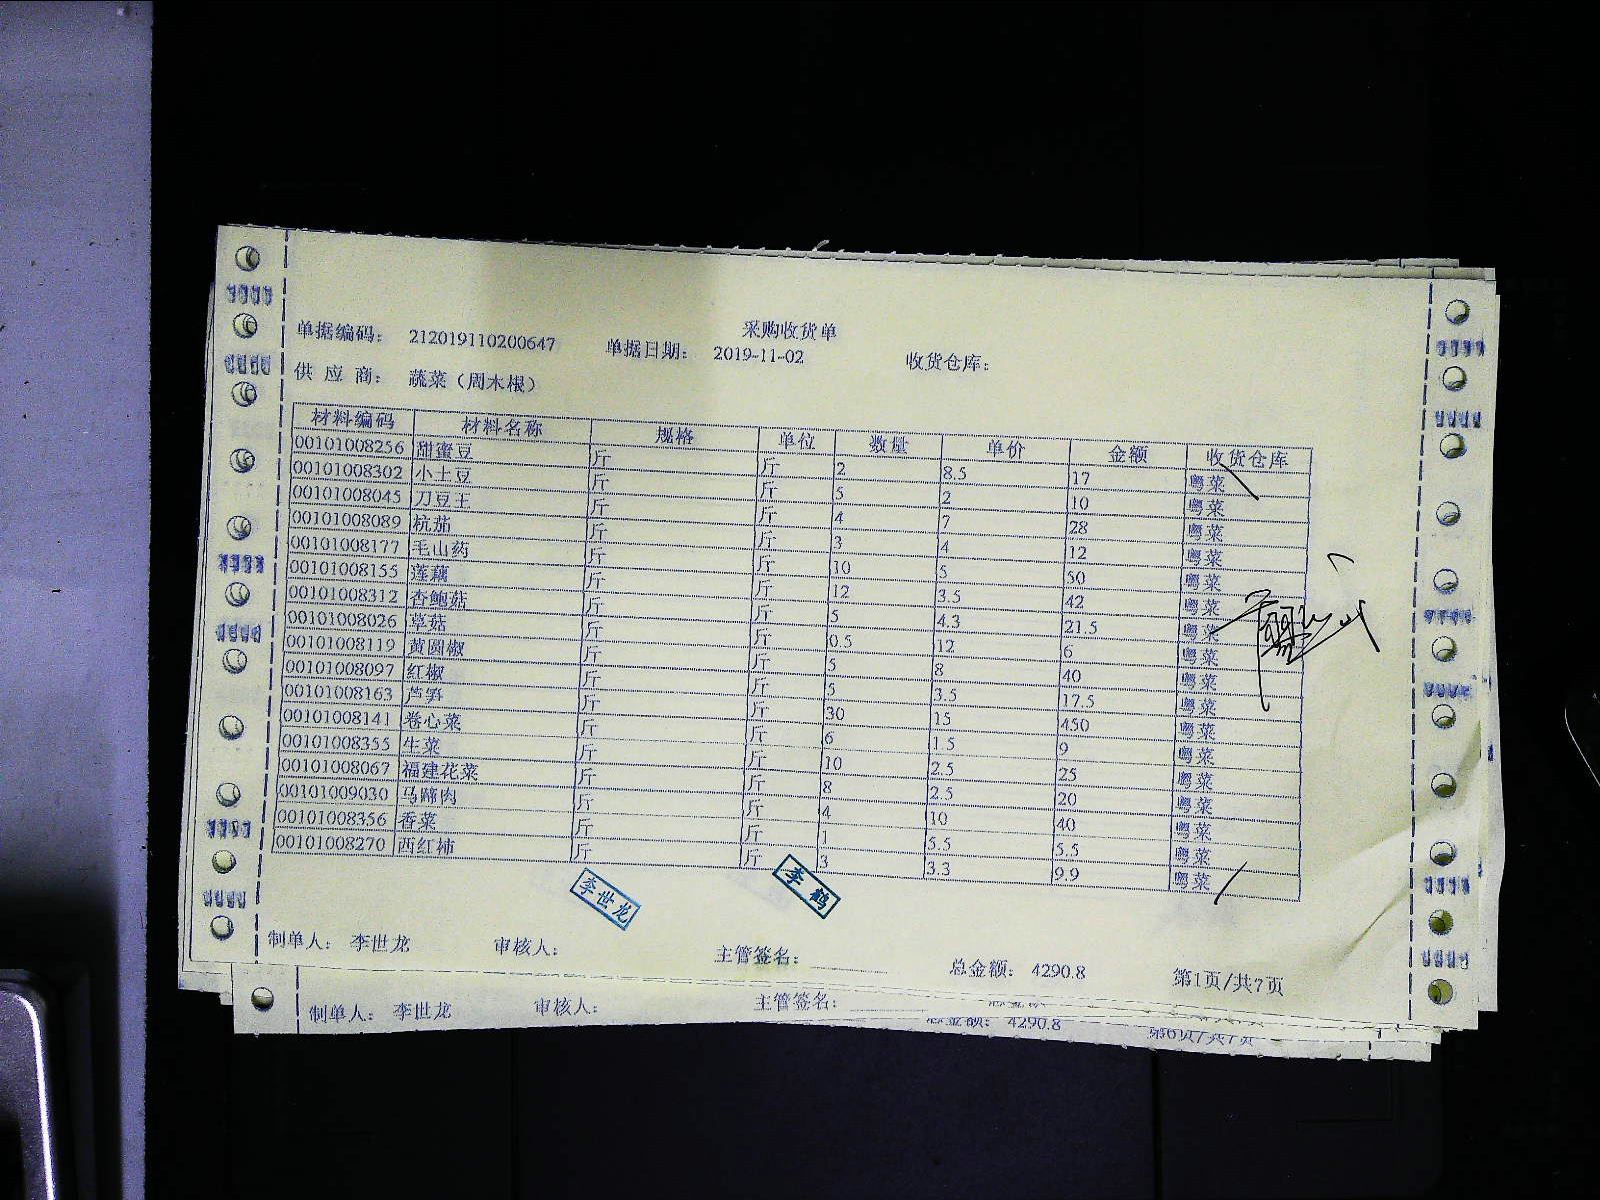 采购收货单
单据编码： 212019110200647 单据日期： 2019-11-02 收货仓库：
供 应 商： 蔬菜（周木根）
材料编码 材料名称 规格 单位 数量 单价 金额 收货仓库
00101008256 甜蜜豆 斤 斤 2 8.5 17 粤菜
00101008302 小土豆 斤 斤 5 2 10 粤菜
00101008045 刀豆王 斤 斤 4 7 28 粤菜
00101008089 杭茄 斤 斤 3 4 12 粤菜
00101008177 毛山药 斤 斤 10 5 50 粤菜
00101008155 莲藕 斤 斤 12 3.5 42 粤菜
00101008312 杏鲍菇 斤 斤 5 4.3 21.5 粤菜
00101008026 草菇 斤 斤 0.5 12 6 粤菜
00101008119 黄圆椒 斤 斤 5 8 40 粤菜
00101008097 红椒 斤 斤 5 3.5 17.5 粤菜
00101008163 芦笋 斤 斤 30 15 450 粤菜
00101008141 卷心菜 斤 斤 6 1.5 9 粤菜
00101008355 生菜 斤 斤 10 2.5 25 粤菜
00101008067 福建花菜 斤 斤 8 2.5 20 粤菜
00101009030 马蹄肉 斤 斤 4 10 40 粤菜
00101008356 香菜 斤 斤 1 5.5 5.5 粤菜
00101008270 西红柿 斤 斤 3 3.3 9.9 粤菜
李世龙 李鹤
制单人： 李世龙 审核人： 主管签名： 总金额： 4290.8 第1页/共7页
制单人： 李世龙 审核人： 主管签名：
总金额： 4290.8 第6页/共7页